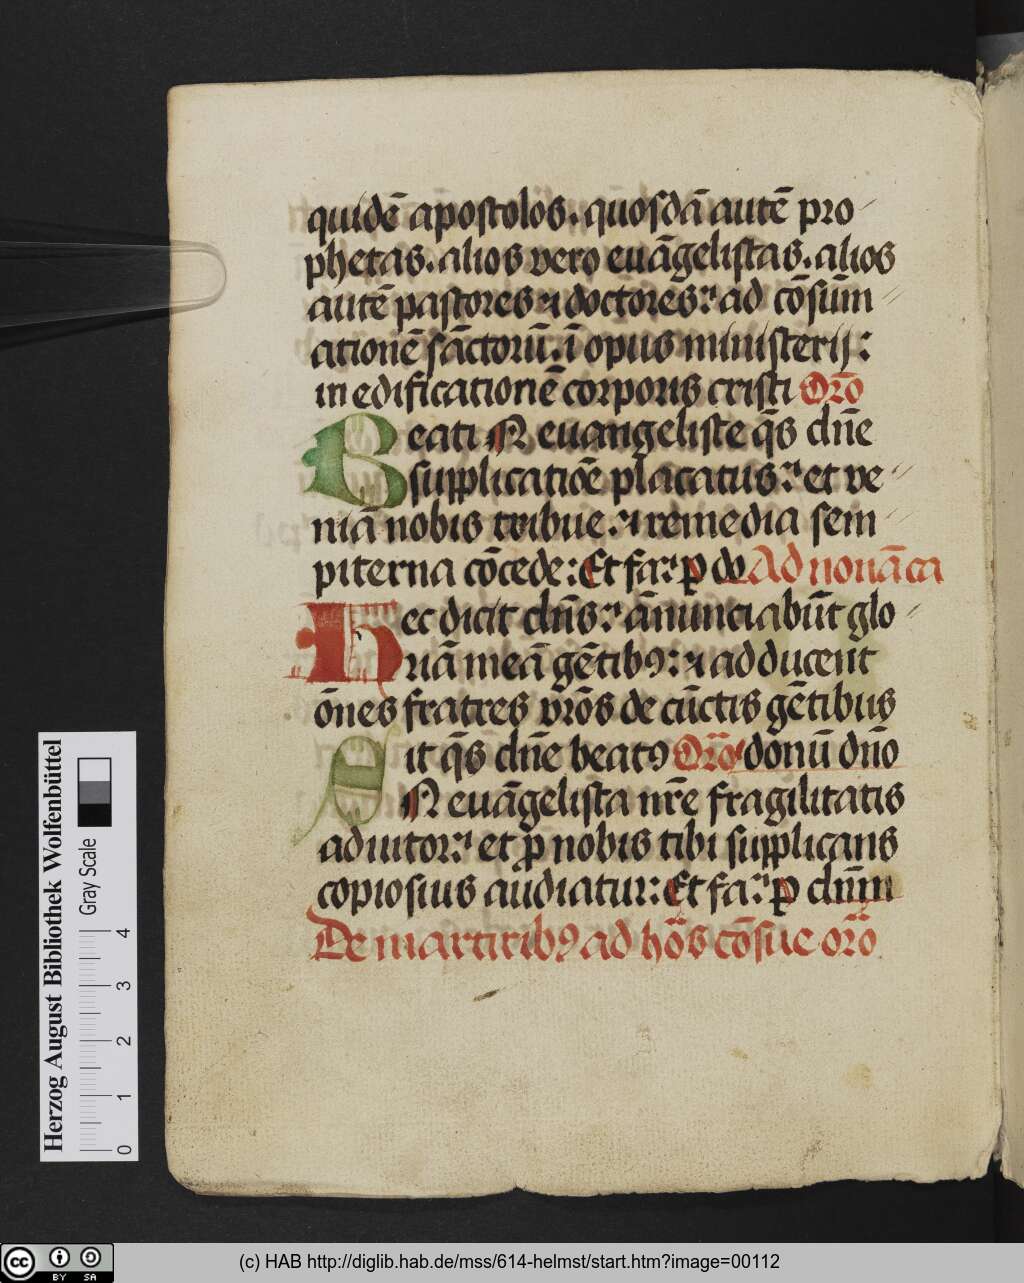 quidē apostolos. quosdā autē pro
phetas. alios vero euāgelistas. alios
autē pastores ⁊ doctores: ad cōsūm
ationē sāctorū. ī opus ministerij:
in edificationē corporis cristi Oro
Beati N euangeliste q̄s dn̄e
supplicatiōe placatus: et ve
niā nobis tribue: ⁊ remedia sem
piterna cōcede: Et fa: p do Ad nonā ca
Hec dicit dn̄s: ānunciabūt glo
riā meā gētibꝰ: ⁊ adducent
ōnes fratres vr̄os de cūctis gētibus
Ait q̄s dn̄e beatꝰ Oro donū dn̄o
N euāgelista nr̄e fragilitatis
adiutor: et p̄ nobis tibi supplicans
copiosius audiatur: Et fa: p dn̄m
De martiribꝰ ad hōs cōsue oro
Herzog August Bibliothek Wolfenbüttel
Gray Scale
0 1 2 3 4
cc BY SA
(c) HAB http://diglib.hab.de/mss/614-helmst/start.htm?image=00112